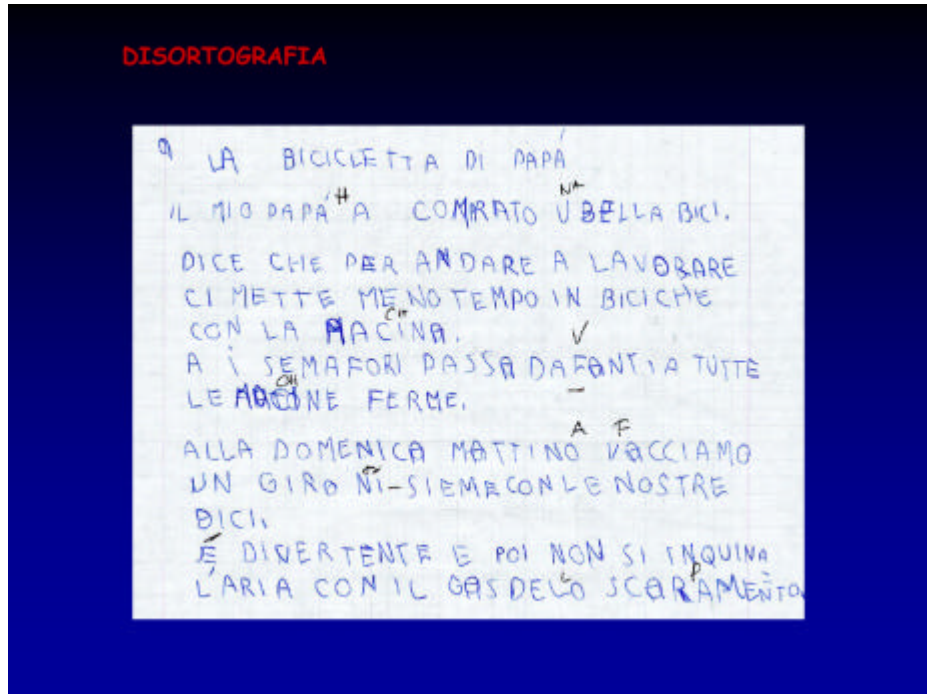 DISORTOGRAFIA
9 LA BICICLETTA DI PAPÀ
H NA
IL MIO PAPÀ A COMPRATO U BELLA BICI.
DICE CHE PER ANDARE A LAVORARE
CI METTE MENO TEMPO IN BICI CHE
CH
CON LA MACINA. V
A I SEMAFORI PASSA DAFANTI A TUTTE
CHI
LE MACINE FERME.
A F
ALLA DOMENICA MATTINO VACCIAMO
UN GIRO NI-SIEME CON LE NOSTRE
BICI.
È DIVERTENTE E POI NON SI INQUINA
L P
L'ARIA CON IL GAS DELO SCARAMENTO.